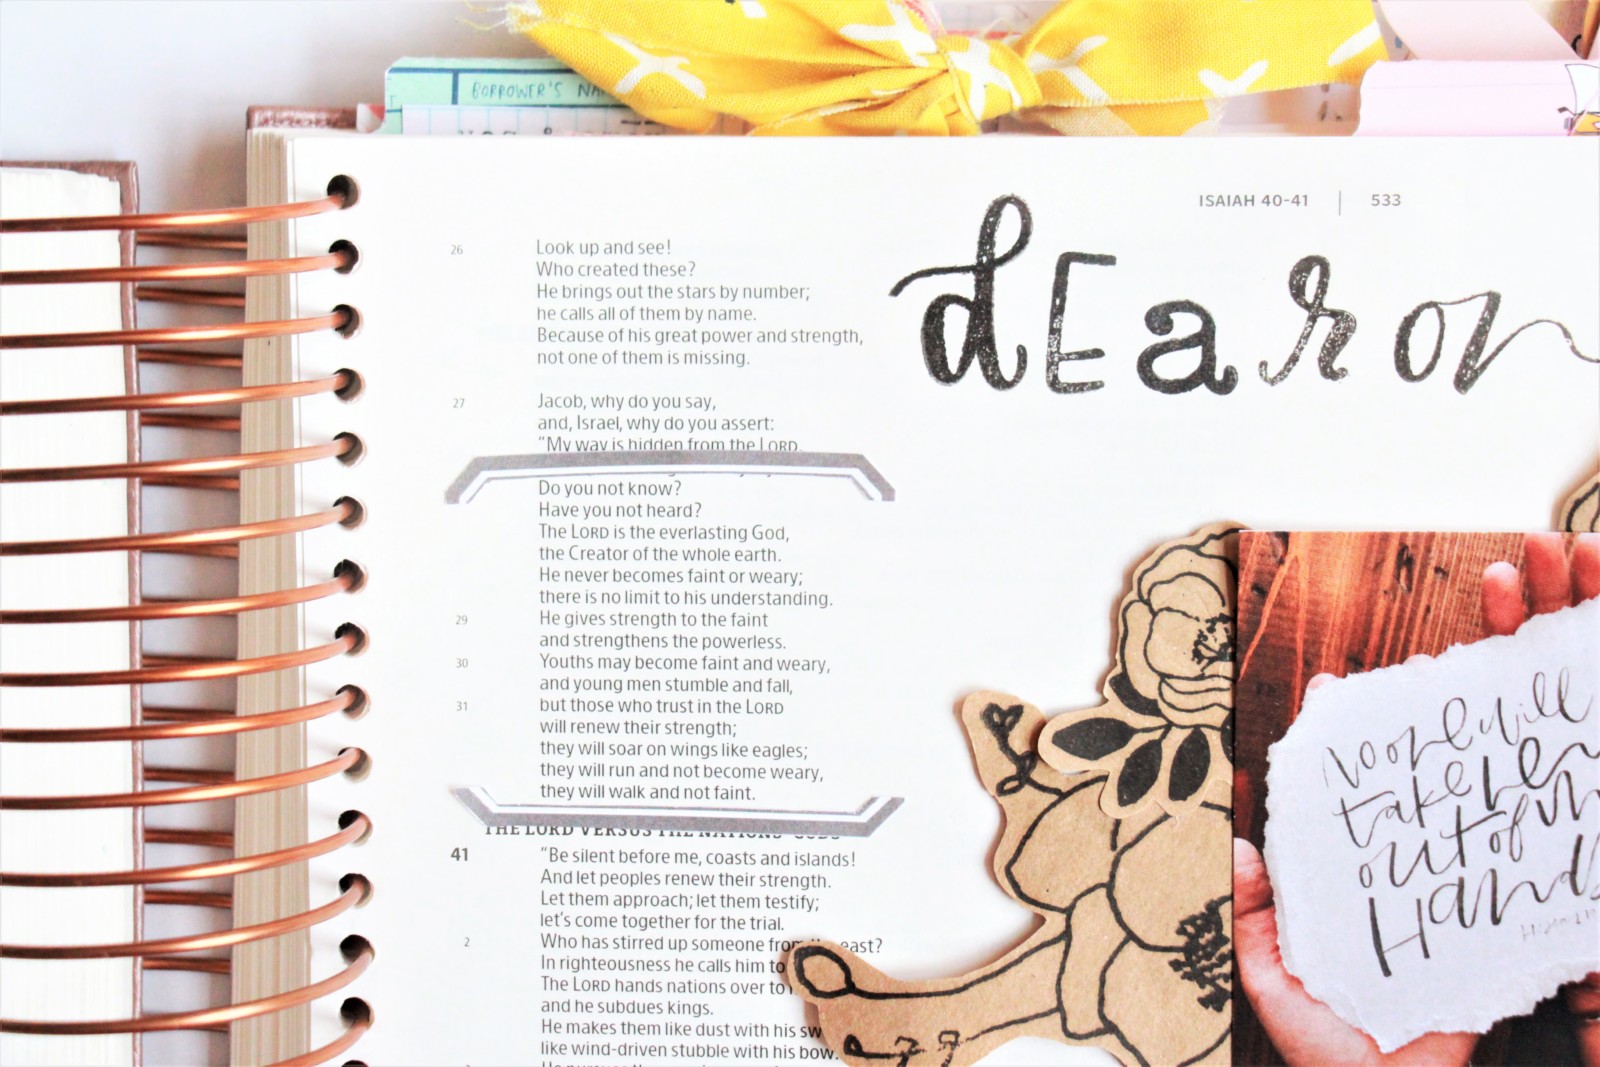 BORROWER'S NA
ISAIAH 40-41 | 533
dEar on
26 Look up and see!
Who created these?
He brings out the stars by number;
he calls all of them by name.
Because of his great power and strength,
not one of them is missing.
27 Jacob, why do you say,
and, Israel, why do you assert:
“My way is hidden from the LORD,
Do you not know?
Have you not heard?
The LORD is the everlasting God,
the Creator of the whole earth.
He never becomes faint or weary;
there is no limit to his understanding.
29 He gives strength to the faint
and strengthens the powerless.
30 Youths may become faint and weary,
and young men stumble and fall,
31 but those who trust in the LORD
will renew their strength;
they will soar on wings like eagles;
they will run and not become weary,
they will walk and not faint.
THE LORD VERSUS THE NATIONS' GODS
41 “Be silent before me, coasts and islands!
And let peoples renew their strength.
Let them approach; let them testify;
let's come together for the trial.
2 Who has stirred up someone from the east?
In righteousness he calls him to
The LORD hands nations over to
and he subdues kings.
He makes them like dust with his sw
like wind-driven stubble with his bow.
no one will
take
out of
Hands